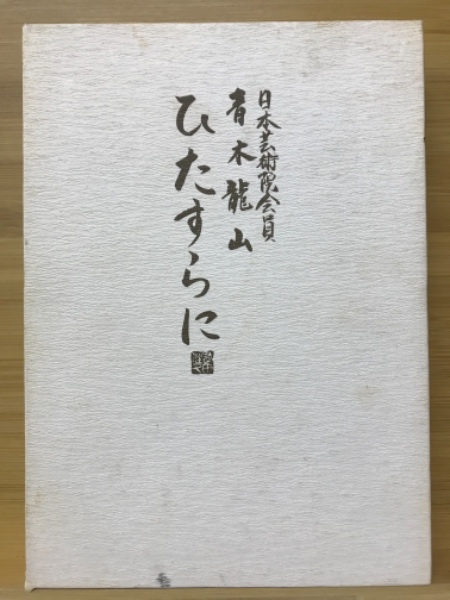 日本芸術院会員
青木龍山
ひたすらに